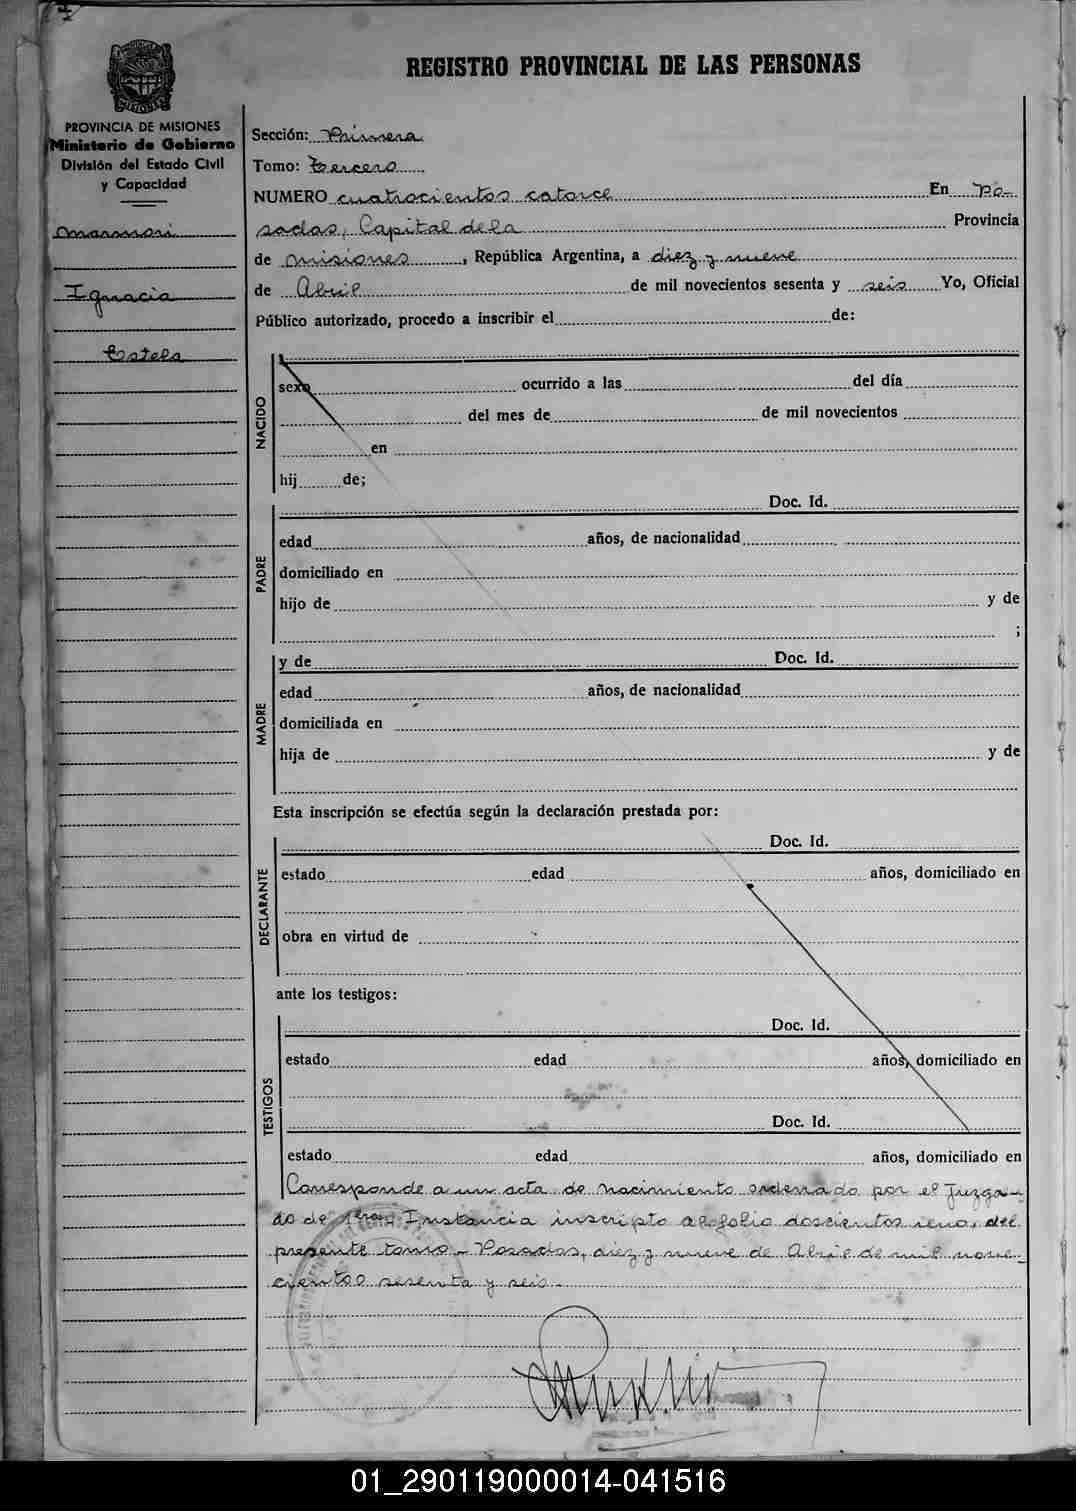 REGISTRO PROVINCIAL DE LAS PERSONAS
PROVINCIA DE MISIONES
Ministerio de Gobierno
División del Estado Civil
y Capacidad
Marmori
Ignacia
Estela
Sección: Primera
Tomo: Tercero
NUMERO cuatrocientos catorce En Po-
sadas, Capital de la Provincia
de Misiones, República Argentina, a diez y nueve
de Abril de mil novecientos sesenta y seis Yo, Oficial
Público autorizado, procedo a inscribir el de:
NACIDO
sexo ocurrido a las del día
del mes de de mil novecientos
en
hij de;
PADRE
Doc. Id.
edad años, de nacionalidad
domiciliado en
hijo de y de
;
MADRE
y de Doc. Id.
edad años, de nacionalidad
domiciliada en
hija de y de
Esta inscripción se efectúa según la declaración prestada por:
DECLARANTE
Doc. Id.
estado edad años, domiciliado en
obra en virtud de
ante los testigos:
TESTIGOS
Doc. Id.
estado edad años, domiciliado en
Doc. Id.
estado edad años, domiciliado en
Corresponde a un acta de nacimiento ordenado por el Juzga-
do de 1ra. Instancia inscripto al folio doscientos uno, del
presente tomo - Posadas, diez y nueve de Abril de mil nove-
cientos sesenta y seis.-
01_290119000014-041516